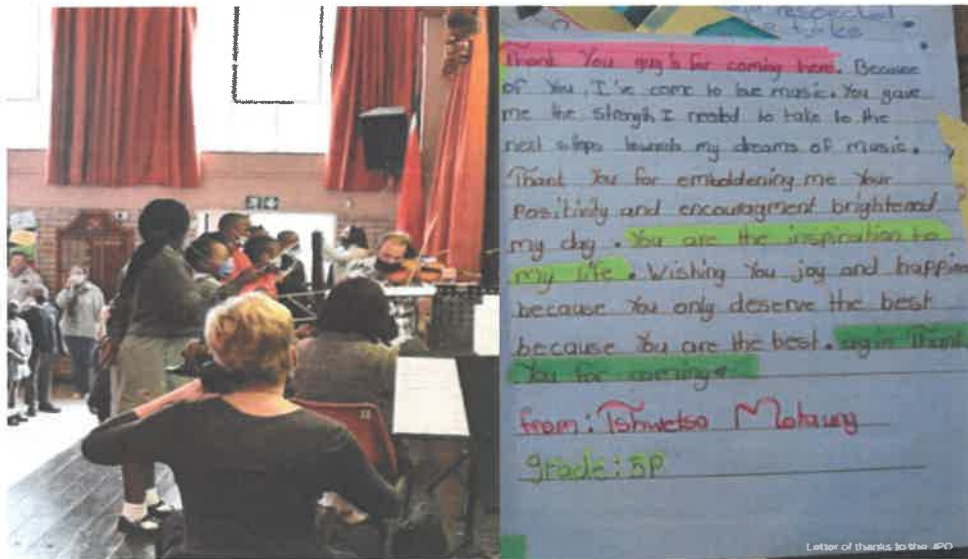 respected
Thank You guy's for coming here. Because
of You, I've come to love music. You gave
me the strength I needed to take to the
next steps towards my dreams of music.
Thank You for emboldening me Your
Positivity and encouragment brightened
my day. You are the inspiration to
my life. Wishing You joy and happine
because You only deserve the best
because You are the best. agin Thank
You for coming.
from: Tshwetso
grade: 5P
Letter of thanks to the JPO